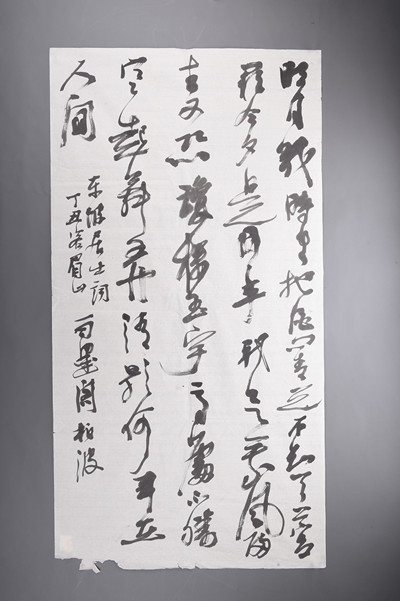 明月幾時有把酒问青天不知天上宫
阙今夕是何年我欲乘風归
去又恐瓊樓玉宇高處不勝
寒起舞弄清影何似在
人间
东坡居士词
丁丑客眉山
墨阁柏波